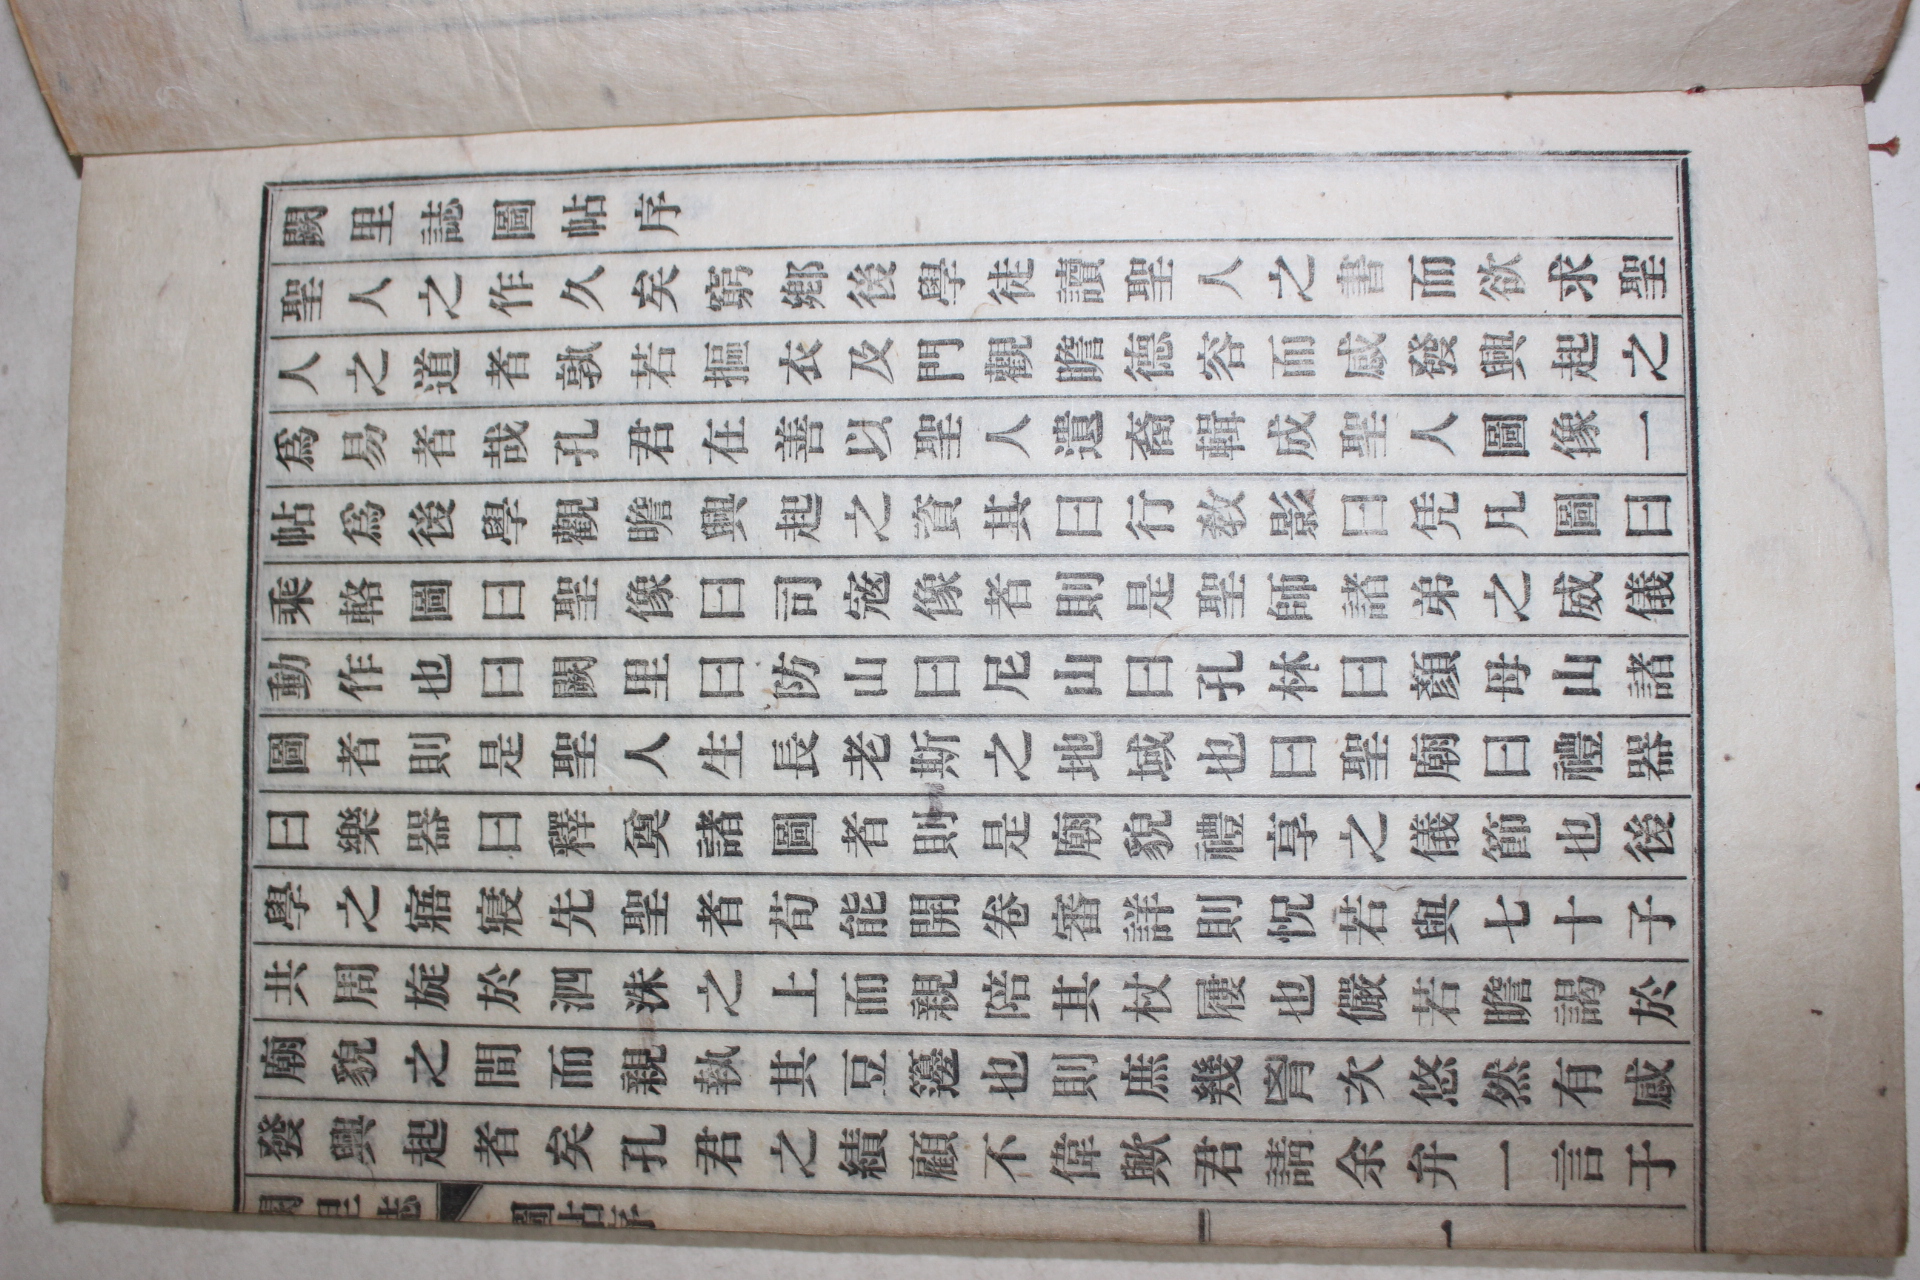 闕里誌圖帖序
聖人之作久矣窮鄕後學徒讀聖人之書而欲求聖
人之道者孰若摳衣及門觀瞻德容而感發興起之
爲易者哉孔君在善以聖人遺裔輯成聖人圖像一
帖爲後學觀瞻興起之資其曰行敎影曰凭凡圖曰
乘輅圖曰聖像曰司寇像者則是聖師諸弟之威儀
動作也曰闕里曰防山曰尼山曰孔林曰顏母山諸
圖者則是聖人生長老斯之地域也曰聖廟曰禮器
曰樂器曰釋奠諸圖者則是廟貌禮享之儀節也後
學之寤寢先聖者苟能開卷審詳則怳若與七十子
共周旋於泗洙之上而親陪其杖屨也儼若瞻謁於
廟貌之間而親執其豆籩也則庶幾胷次悠然有感
發興起者矣孔君之績顧不偉歟君請余弁一言于
闕里誌 圖帖序 一